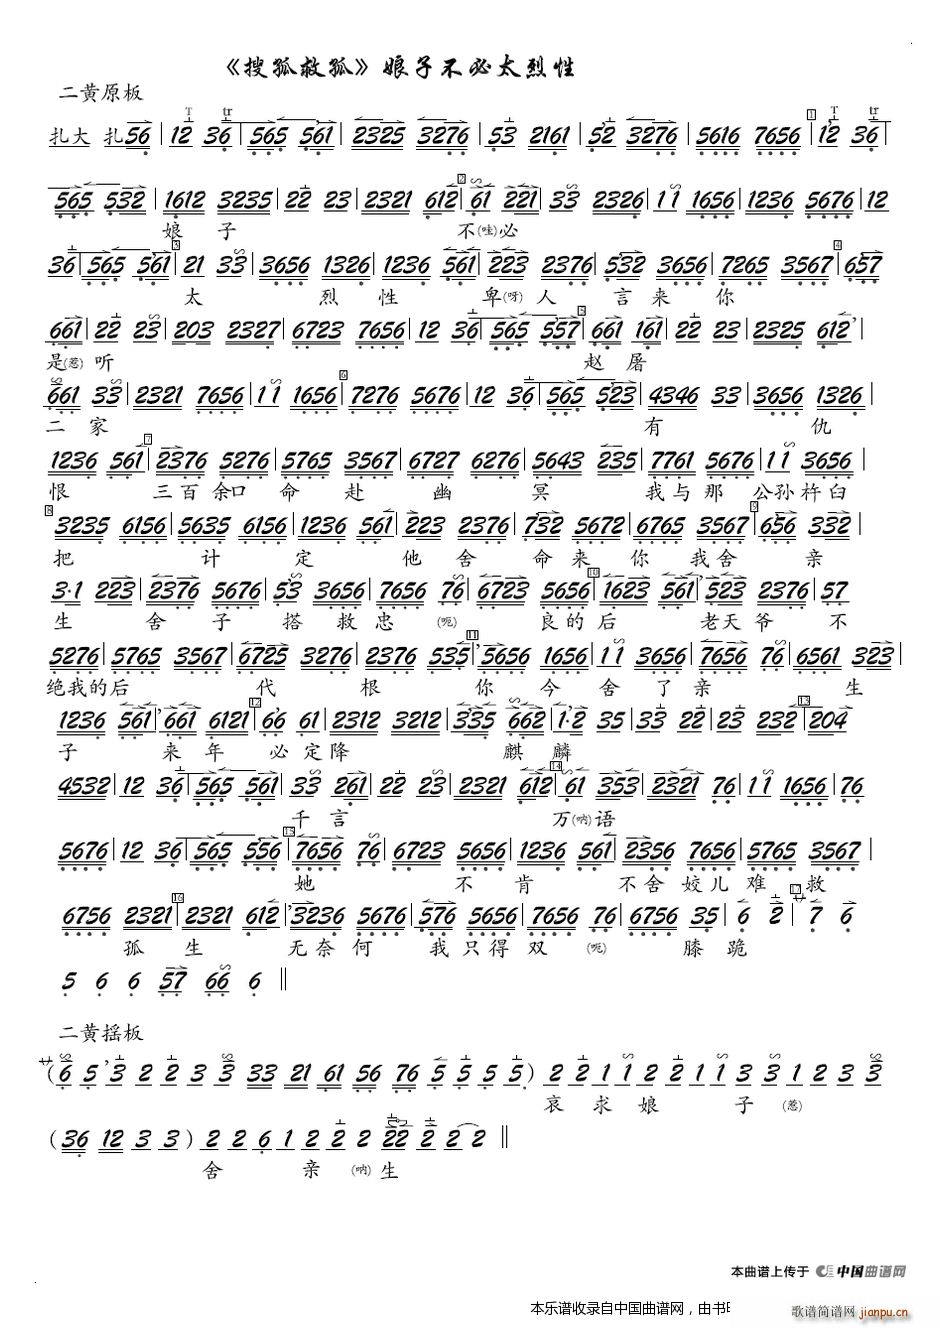 《搜孤救孤》娘子不必太烈性
二黄原板
扎大 扎56 | 12 36 | 565 561 | 2325 3276 | 53 2161 | 52 3276 | 5616 7656 | 12 36 |
565 532 | 1612 3235 | 22 23 | 2321 612 | 61 221 | 33 2326 | 11 1656 | 1236 5676 | 12
娘 子 不(哇)必
36 | 565 561 | 21 33 | 3656 1326 | 1236 561 | 223 2376 | 532 3656 | 7265 3567 | 657
太 烈 性 卑(呀)人 言 来 你
661 | 22 23 | 203 2327 | 6723 7656 | 12 36 | 565 557 | 661 161 | 22 23 | 2325 612 |
是(惹)听 赵 屠
661 33 | 2321 7656 | 11 1656 | 7276 5676 | 12 36 | 565 523 | 4346 33 | 3656 1326 |
二 家 有 仇
1236 561 | 2376 5276 | 5765 3567 | 6727 6276 | 5643 235 | 7761 5676 | 11 3656 |
恨 三百 余口 命 赴 幽 冥 我与那 公孙杵臼
3235 6156 | 5635 6156 | 1236 561 | 223 2376 | 732 5672 | 6765 3567 | 656 332 |
把 计 定 他 舍 命 来 你 我舍 亲
3·1 223 | 2376 5676 | 53 3656 | 7656 76 | 6723 5656 | 1623 561 | 523 2376 | 57
生 舍 子 搭 救 忠 (呃) 良的后 老天爷 不
5276 | 5765 3567 | 6723 3276 | 2376 535 | 5656 1656 | 11 3656 | 7656 76 | 6561 323 |
绝我的后 代 根 你 今 舍 了 亲 生
1236 561 | 661 6121 | 66 61 | 2312 3212 | 335 662 | 1·2 35 | 33 22 | 23 232 | 204
子 来 年 必 定降 麒 麟
4532 | 12 36 | 565 561 | 33 261 | 22 23 | 2321 612 | 61 353 | 2321 76 | 11 1656 | 76
千 言 万(呐)语
5676 | 12 36 | 565 556 | 7656 76 | 6723 5656 | 1236 561 | 2356 7656 | 5765 3567 |
她 不 肯 不舍 姣儿 难 救
6756 2321 | 2321 612 | 3236 5676 | 576 5656 | 7656 76 | 6756 35 | 6 2 | 7 6
孤 生 无奈何 我只得双 (呃) 膝 跪
5 6 6 57 66 6 ‖
二黄摇板
(6 5 3 2 2 3 3 33 21 61 56 76 5 5 5 5) 2 2 1 1 2 2 1 1 3 3 1 2 3 3
哀 求 娘 子 (惹)
(36 12 3 3) 2 2 6 1 2 2 2 22 2 2 2 ‖
舍 亲 (呐)生
本曲谱上传于 中国曲谱网
本乐谱收录自中国曲谱网，由书
歌谱简谱网 jianpu.cn